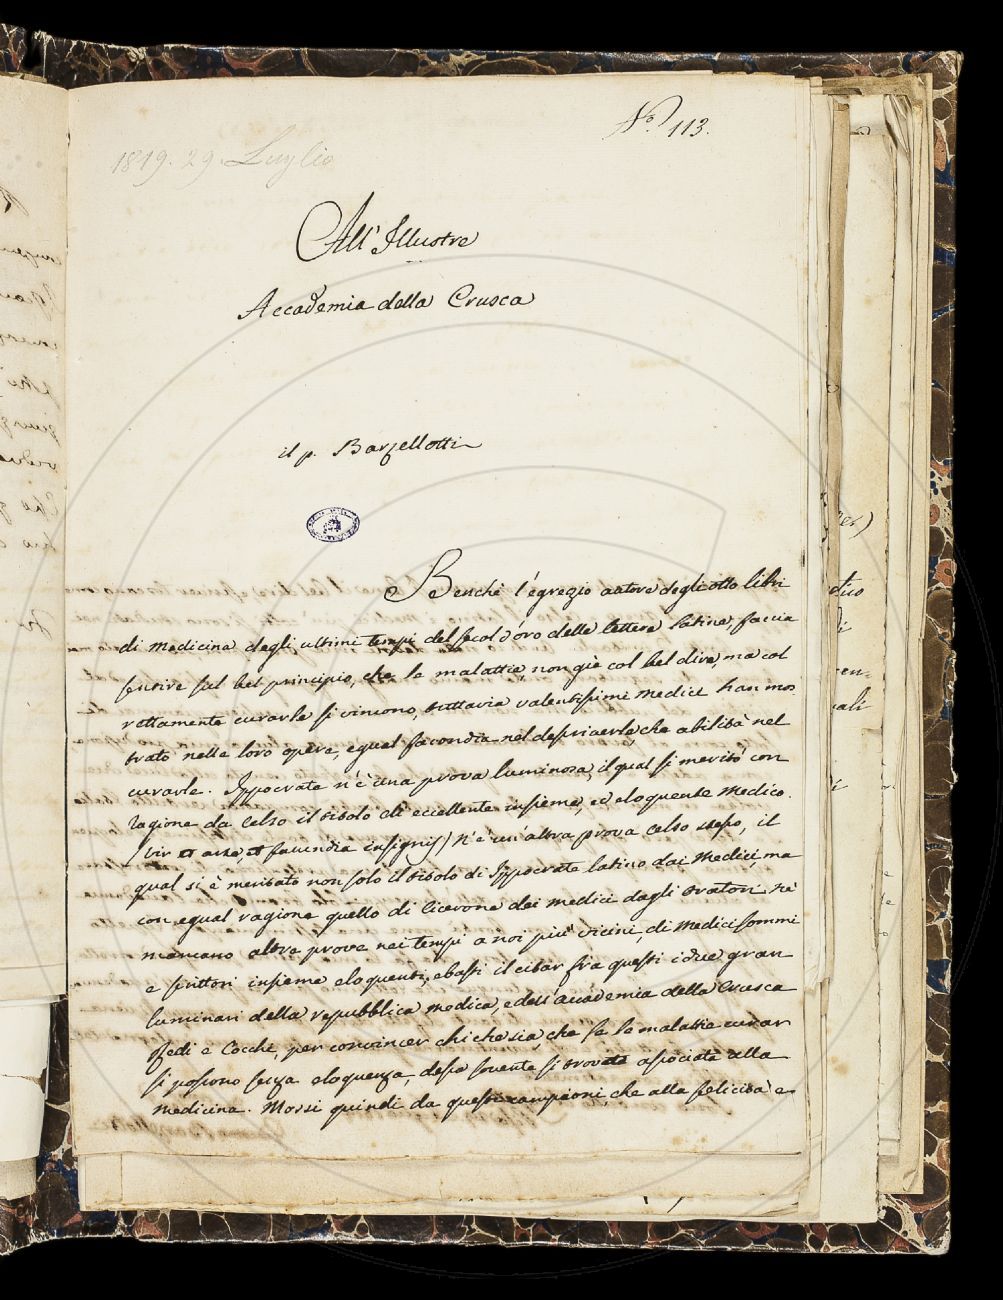 N.º 113.
1819. 29. Luglio
All' Illustre
Accademia della Crusca
il p. Barzellotti
Benchè l'egregio autore degli otto libri
di medicina degli ultimi tempi del secol d'oro delle lettere latine, faccia
sentire sul bel principio, che le malattie, non già col bel dire, ma col
rettamente curarle si vincono, tuttavia valentissimi medici han mos
trato nelle loro opere, egual facondia nel descriverle, che abilità nel
curarle. Ippocrate n'è una prova luminosa, il qual si meritò con
ragione da Celso il titolo di eccellente insieme, ed eloquente medico.
(vir et arte, et facundia insignis) N'è un'altra prova Celso stesso, il
qual si è meritato non solo il titolo di Ippocrate latino dai medici, ma
con egual ragione quello di Cicerone dei medici dagli oratori. nè
mancano altre prove nei tempi a noi più vicini, di medici sommi
e scrittori insieme eloquenti, e basti il citar fra questi i due gran
luminari della repubblica medica, e dell'accademia della Crusca
Redi e Cocchi, per convincer chi che sia, che se le malattie curar
si possono senza eloquenza, dessa sovente si trovata associata alla
medicina. Mossi quindi da questi campioni, che alla felicità e